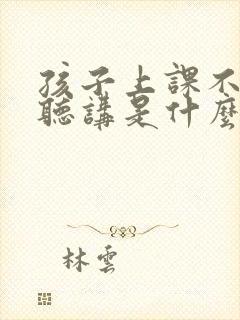 孩子上課不
聽講是什麼
林雲